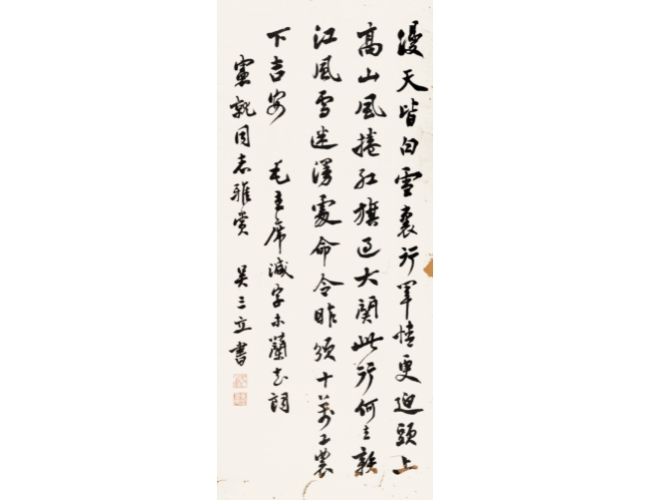 漫天皆白雪裏行軍情更迫頭上
高山風捲紅旗過大関此行何去贛
江風雪迷漫處命令昨頒十萬工農
下吉安 毛主席減字木蘭花詞
憲同志雅賞 吴三立書